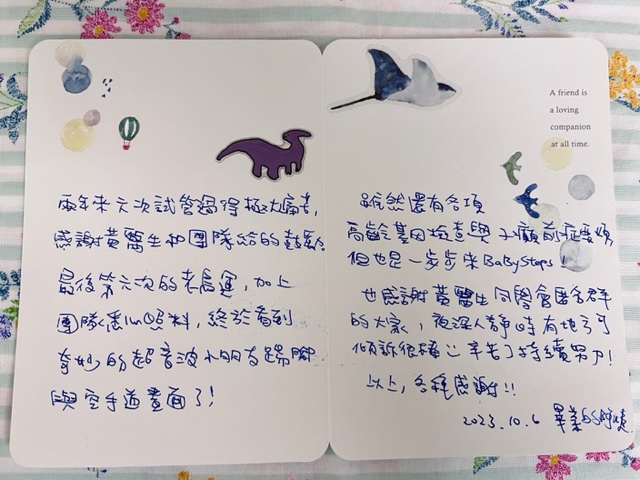 兩年來六次試管過得極大痛苦,
感謝黃醫生和團隊給的鼓勵
最後第六次的老處運,加上
團隊悉心照料,終於看到
奇妙的超音波小朋友踢腳
與空手道畫面了!
A friend is
a loving
companion
at all time.
雖然還有各項
高齡基因檢查與子癲前症要煩
但也是一步步來BabySteps!
也感謝黃醫生同學會匿名群
的大家,夜深人靜時有地方可
傾訴很棒 辛苦了持續努力!
以上,各種感謝!!
2023.10.6 畢業的S